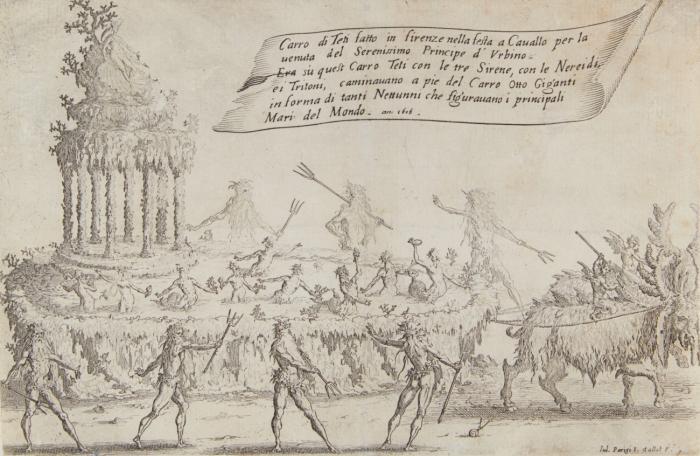 Carro di Teti fatto in firenze nella festa a Cauallo per la
uenuta del Serenissimo Principe d' Vrbino.
Era sù quest Carro Teti con le tre Sirene, con le Nereidi,
ei Tritoni, caminauano a pie del Carro Otto Giganti
in forma di tanti Nettunni che figurauano i principali
Mari del Mondo. an. 1616.
Iul. Parigi I. Callot F.